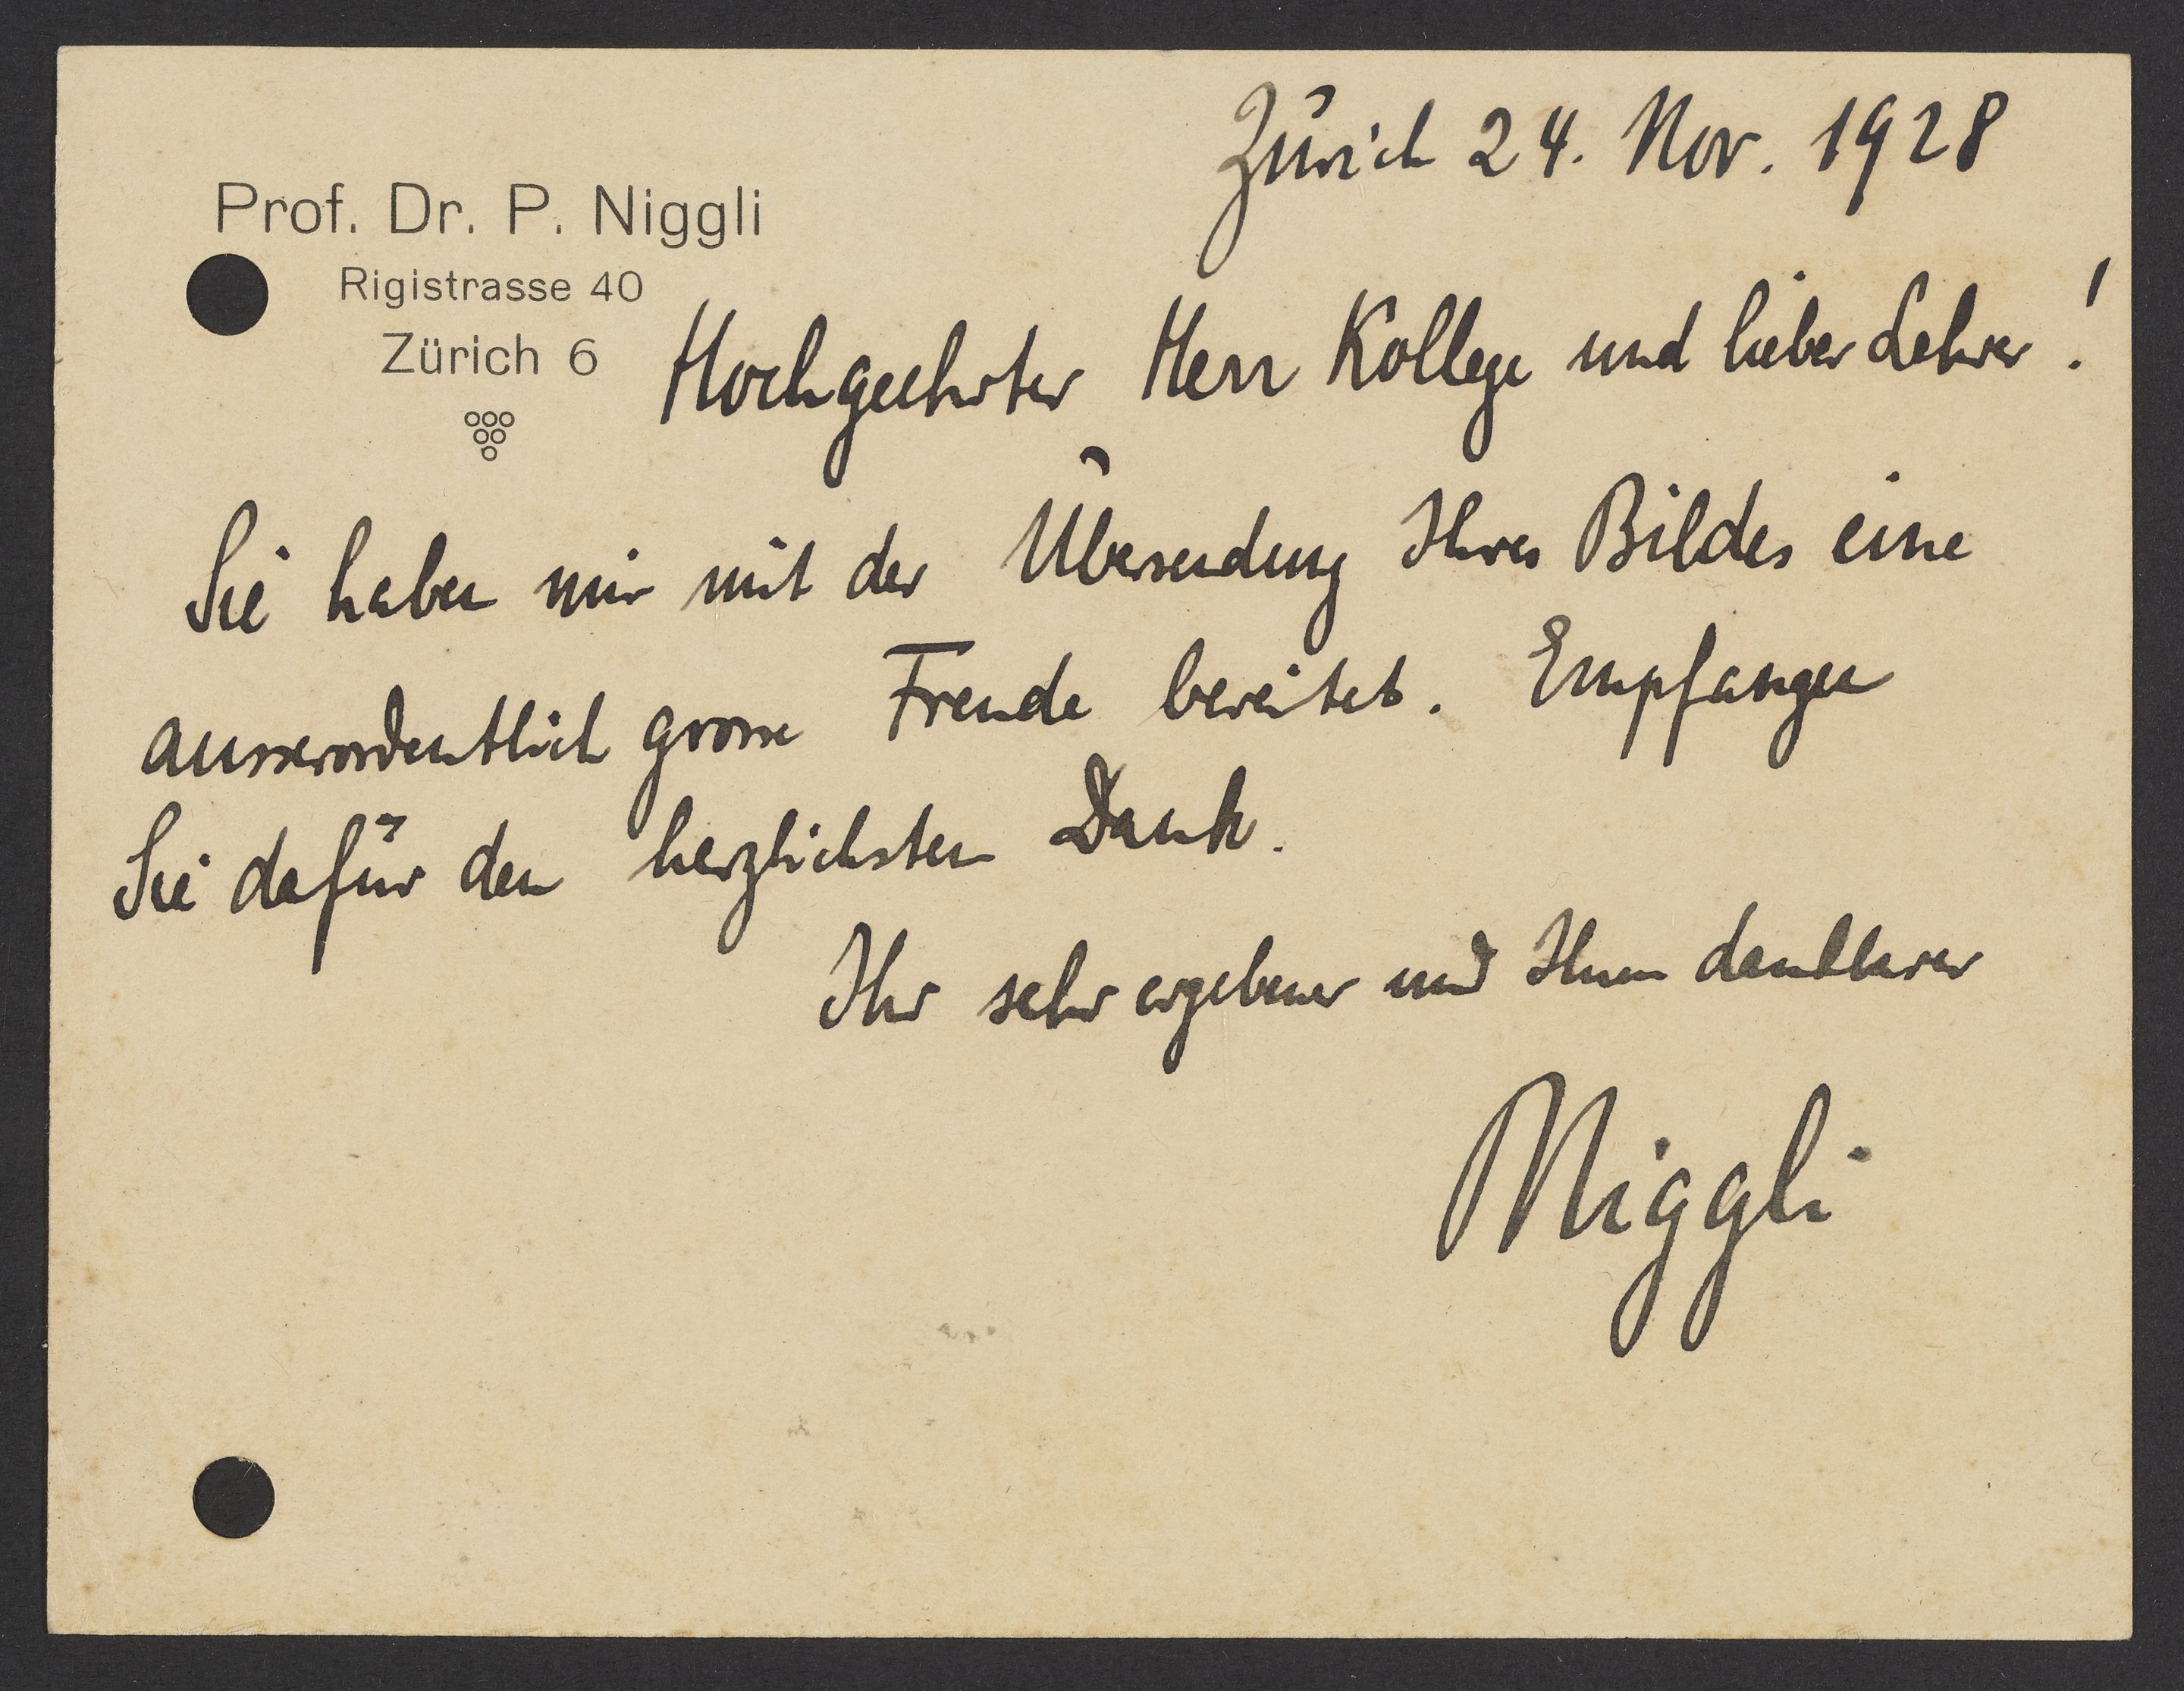 Zürich 24. Nov. 1928
Prof. Dr. P. Niggli
Rigistrasse 40
Zürich 6
Hochgeehrter Herr Kollege und lieber Lehrer!
Sie haben mir mit der Übersendung Ihres Bildes eine
ausserordentlich grosse Freude bereitet. Empfangen
Sie dafür den herzlichsten Dank.
Ihr sehr ergebener und Ihnen dankbarer
Niggli